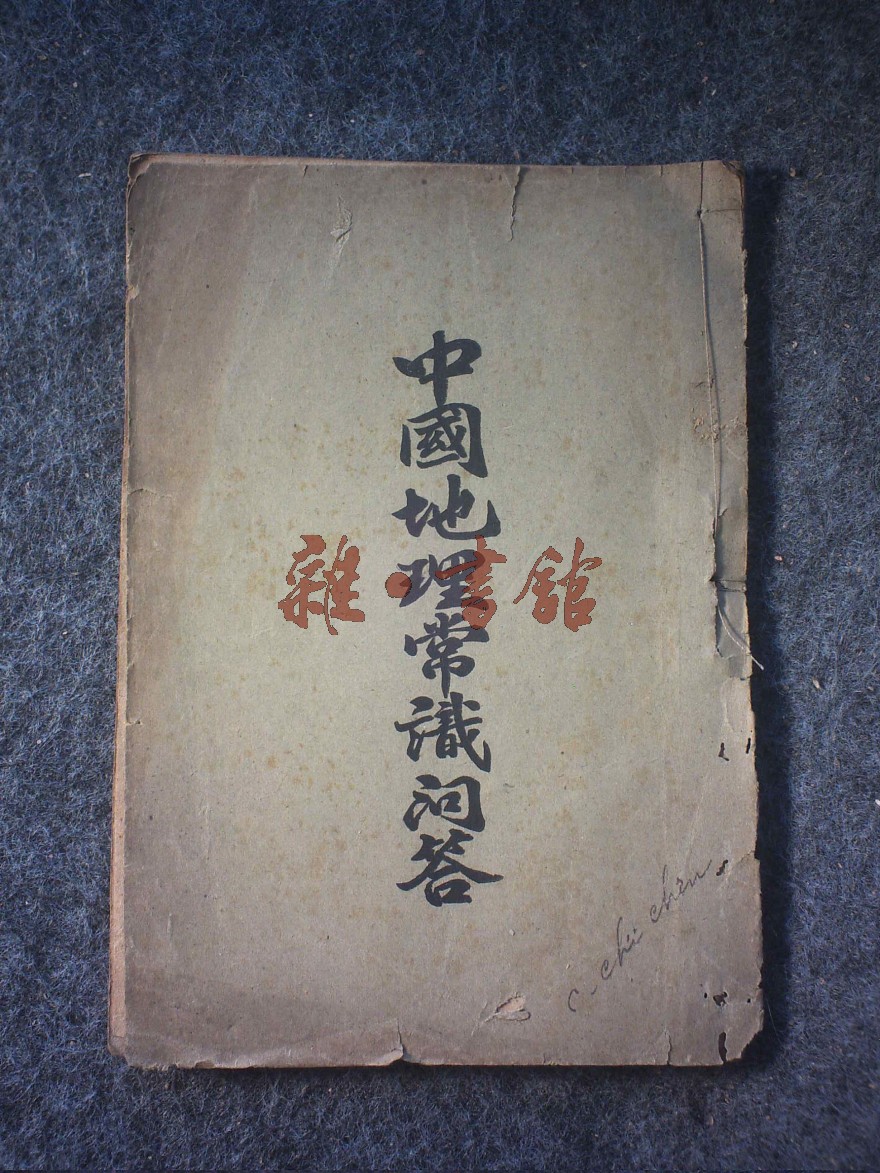 中國地理常識問答
雜·書館
c. chi chen